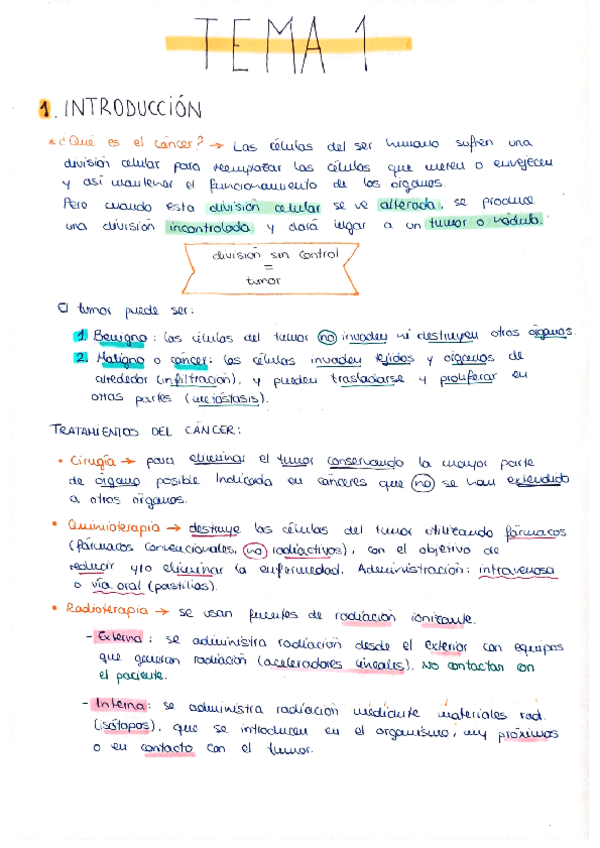 TEMA 1
1. INTRODUCCIÓN
* ¿Qué es el cáncer? → Las células del ser humano sufren una
división celular para reemplazar las células que mueren o envejecen
y así mantener el funcionamiento de los órganos.
Pero cuando esta división celular se ve alterada, se produce
una división incontrolada y dará lugar a un tumor o nódulo.
división sin control
=
tumor
El tumor puede ser:
1. Benigno: las células del tumor no invaden ni destruyen otros órganos.
2. Maligno o cáncer: las células invaden tejidos y órganos de
alrededor (infiltración), y pueden trasladarse y proliferar en
otras partes (metástasis).
TRATAMIENTOS DEL CÁNCER:
• Cirugía → para eliminar el tumor conservando la mayor parte
de órgano posible. Indicada en cánceres que no se han extendido
a otros órganos.
• Quimioterapia → destruye las células del tumor utilizando fármacos
(fármacos convencionales, no radiactivos), con el objetivo de
reducir y/o eliminar la enfermedad. Administración: intravenosa
o vía oral (pastillas).
• Radioterapia → se usan fuentes de radiación ionizante.
- Externa: se administra radiación desde el exterior con equipos
que generan radiación (aceleradores lineales). NO contactan con
el paciente.
- Interna: se administra radiación mediante materiales rad.
(isótopos), que se introducen en el organismo, muy próximos
o en contacto con el tumor.